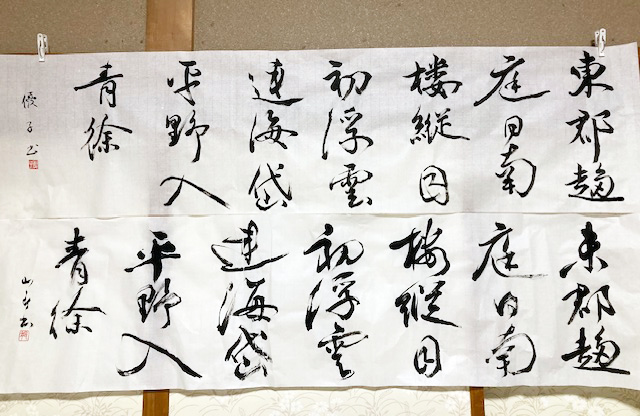 東郡趨
庭日南
楼縦目
初浮雲
連海岱
平野入
青徐
東郡趨
庭日南
楼縦目
初浮雲
連海岱
平野入
青徐